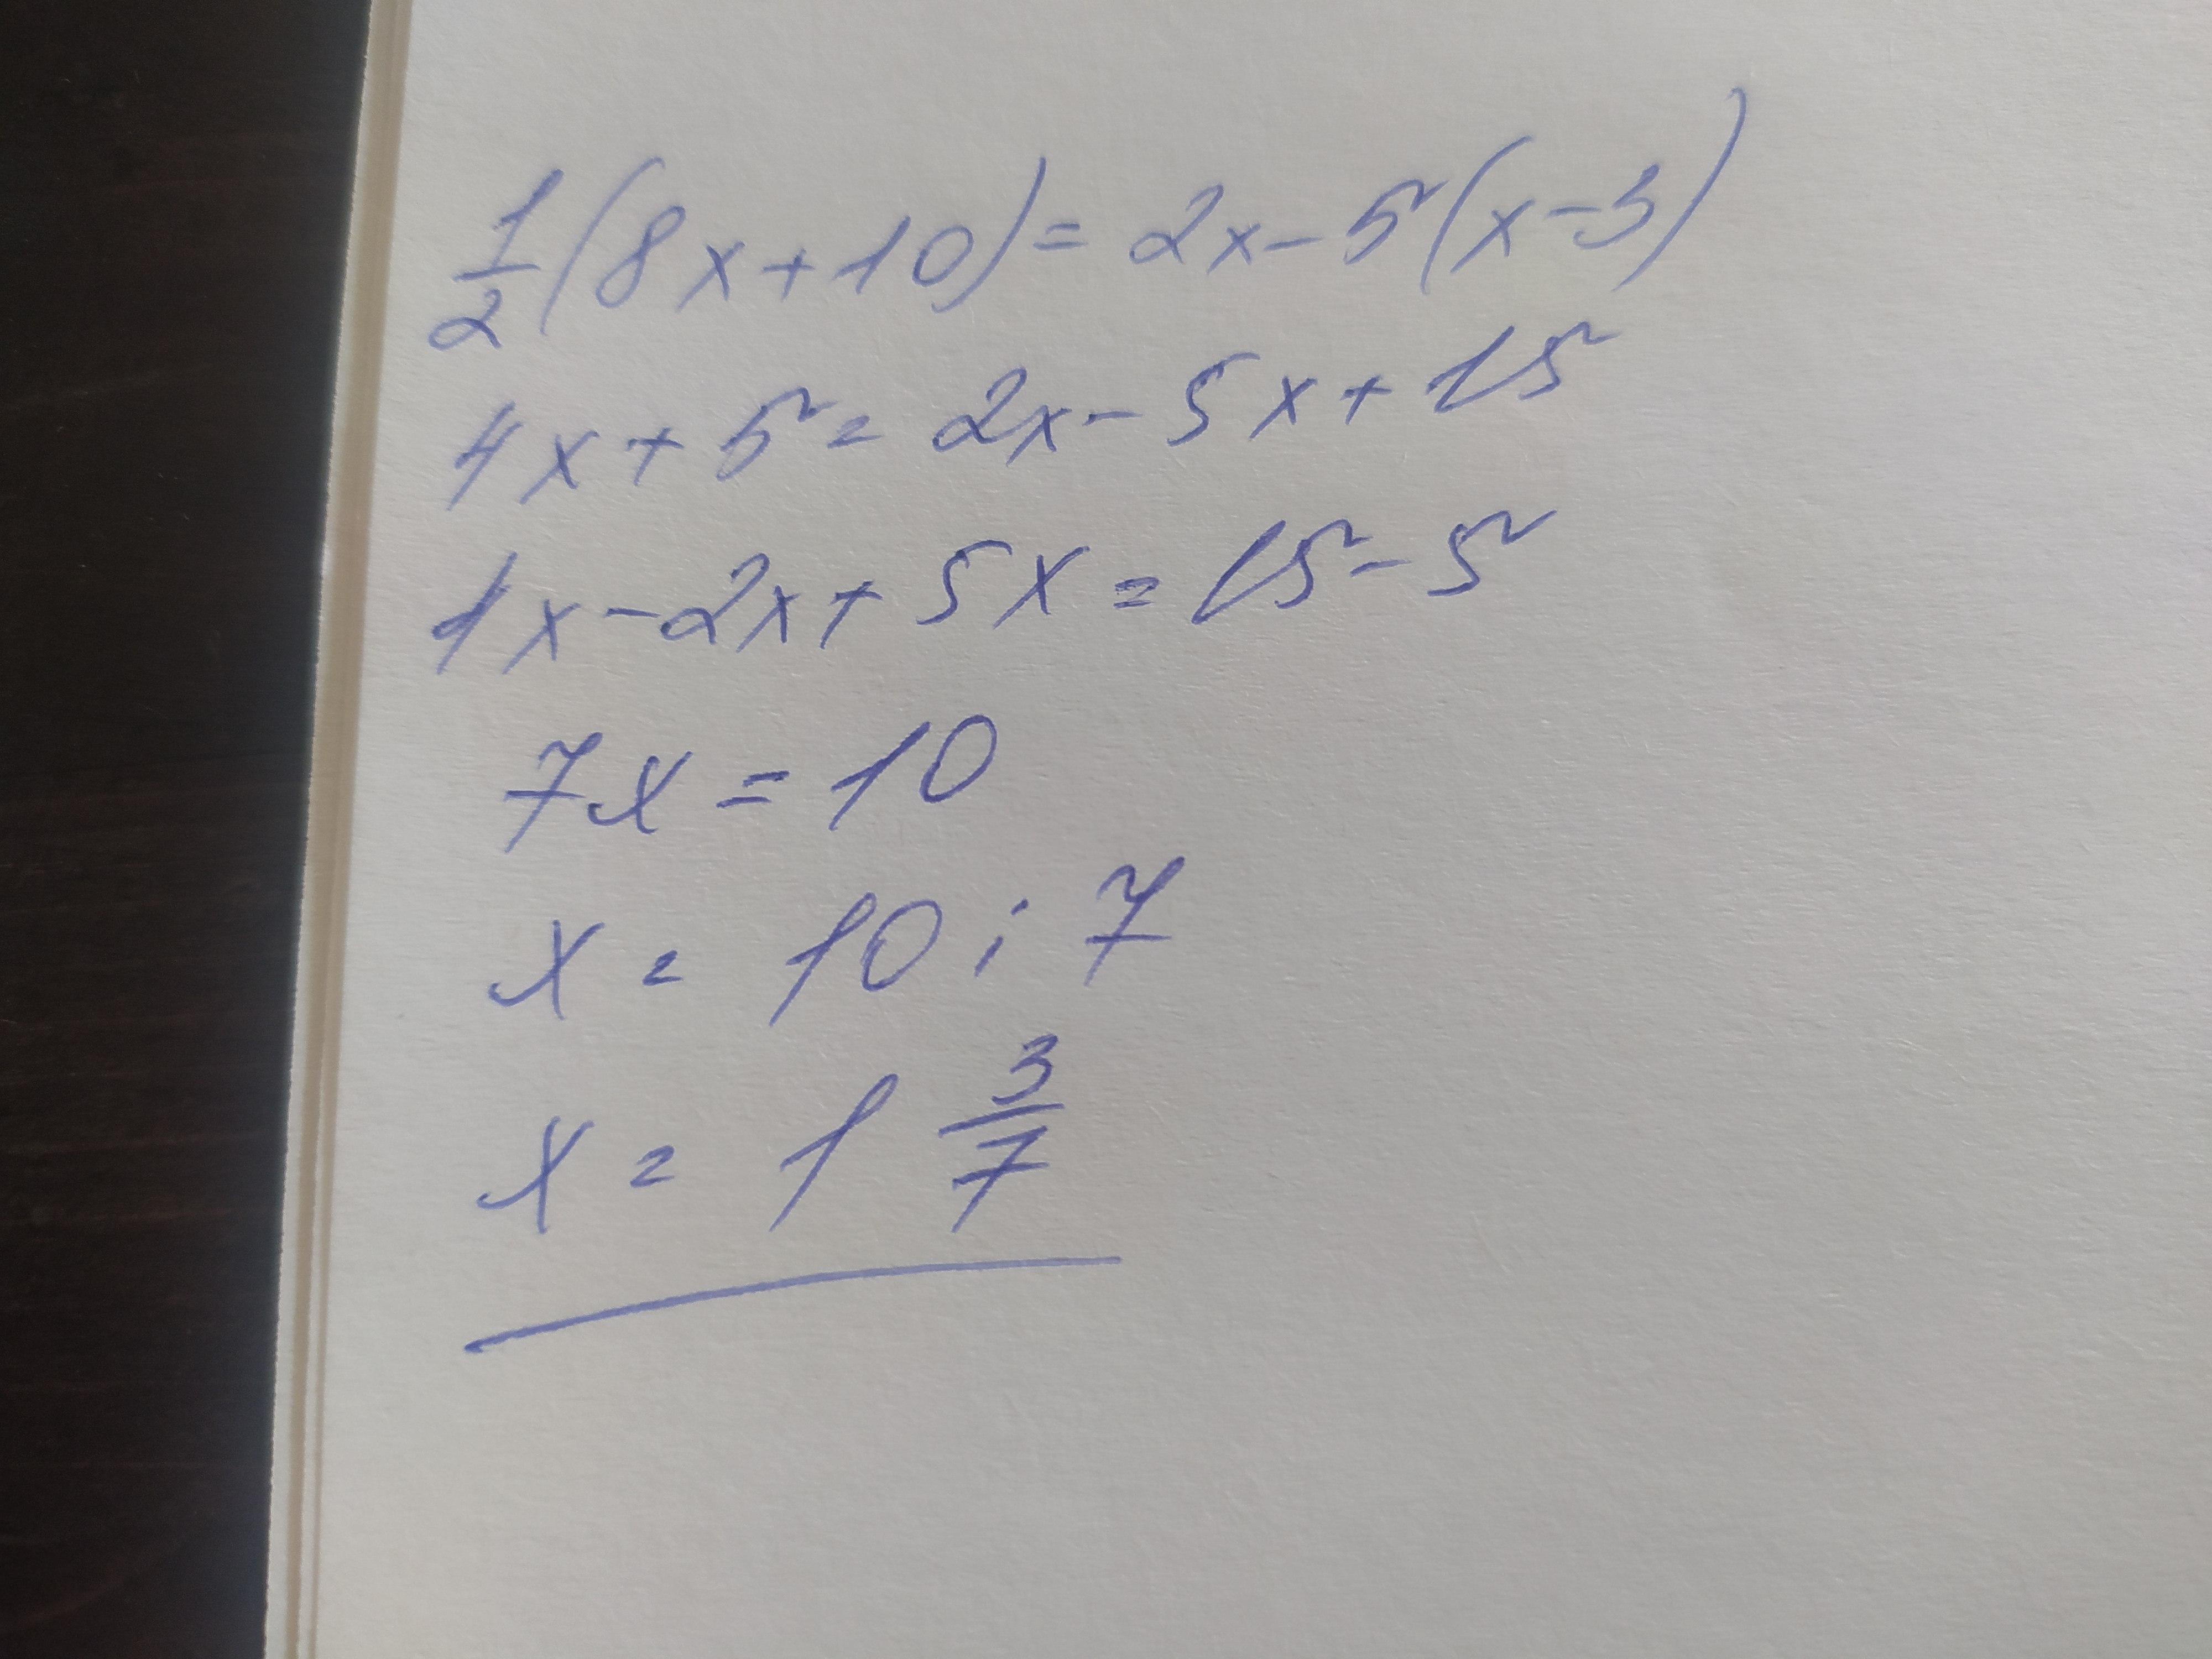 1/2(8x+10)=2x-5(x-3)
4x+5=2x-5x+15
4x-2x+5x=15-5
7x=10
x=10:7
x=1 3/7